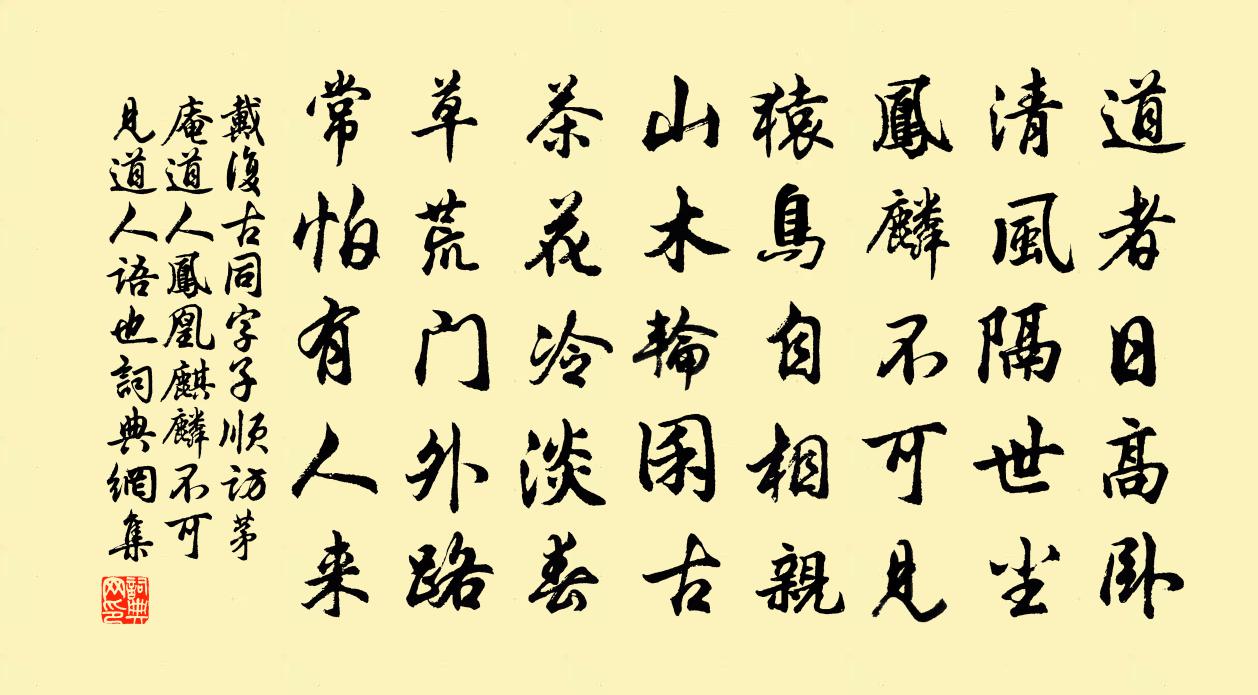 道者日高卧
清風隔世尘
鳳麟不可見
猿鳥自相親
山木輪囷古
茶花冷淡春
草荒门外路
常怕有人来
戴復古同字子順訪茅
庵道人鳳凰麒麟不可
見道人語也詞典網集
詞典网印